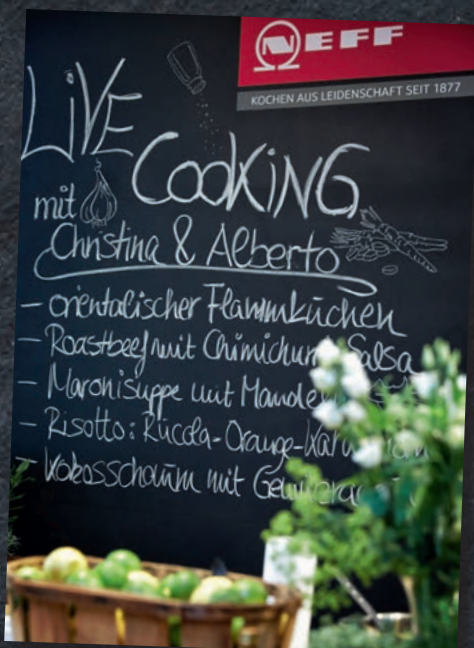 NEFF
KOCHEN AUS LEIDENSCHAFT SEIT 1877
LiVE
COOKiNG
mit
Christina & Alberto
- orientalischer Flammkuchen
- Roastbeef mit Salsa
- Maronisuppe mit
- Risotto: Rucola-Orange-
- Kokosschaum mit